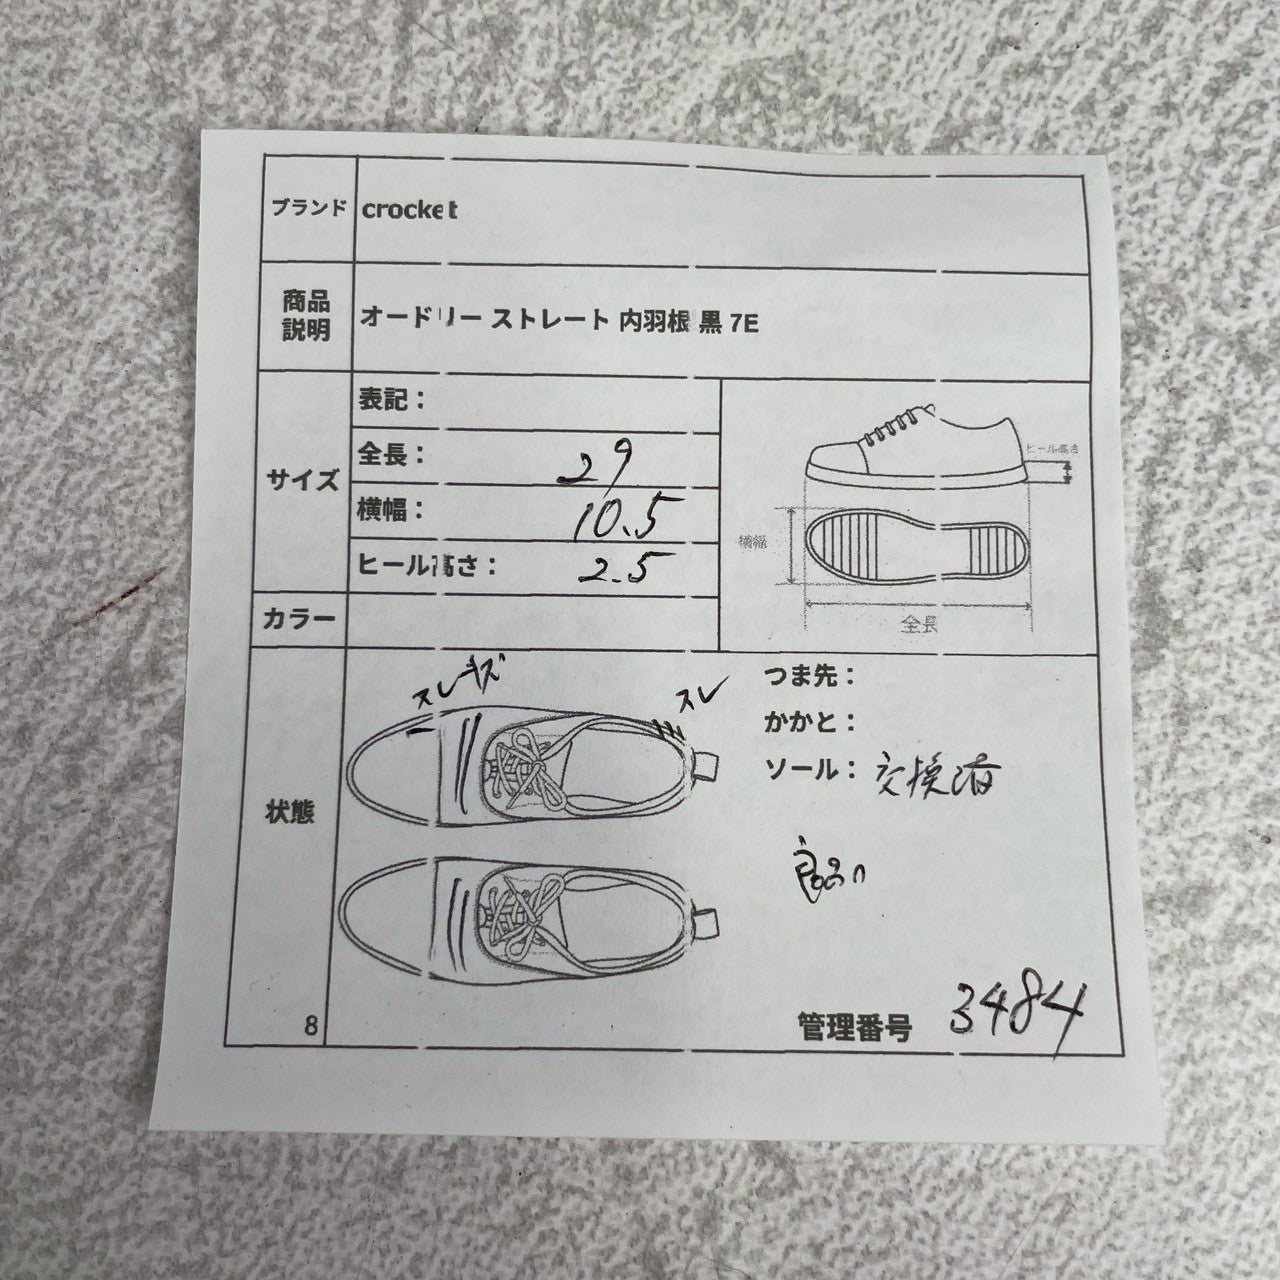 ブランド crocket
商品説明 オードリー ストレート 内羽根 黒 7E
サイズ
表記：
全長： 29
横幅： 10.5
ヒール高さ： 2.5
ヒール高さ
横幅
全長
カラー
状態
スレキズ
スレ
つま先：
かかと：
ソール： 交換済
8
管理番号 3484